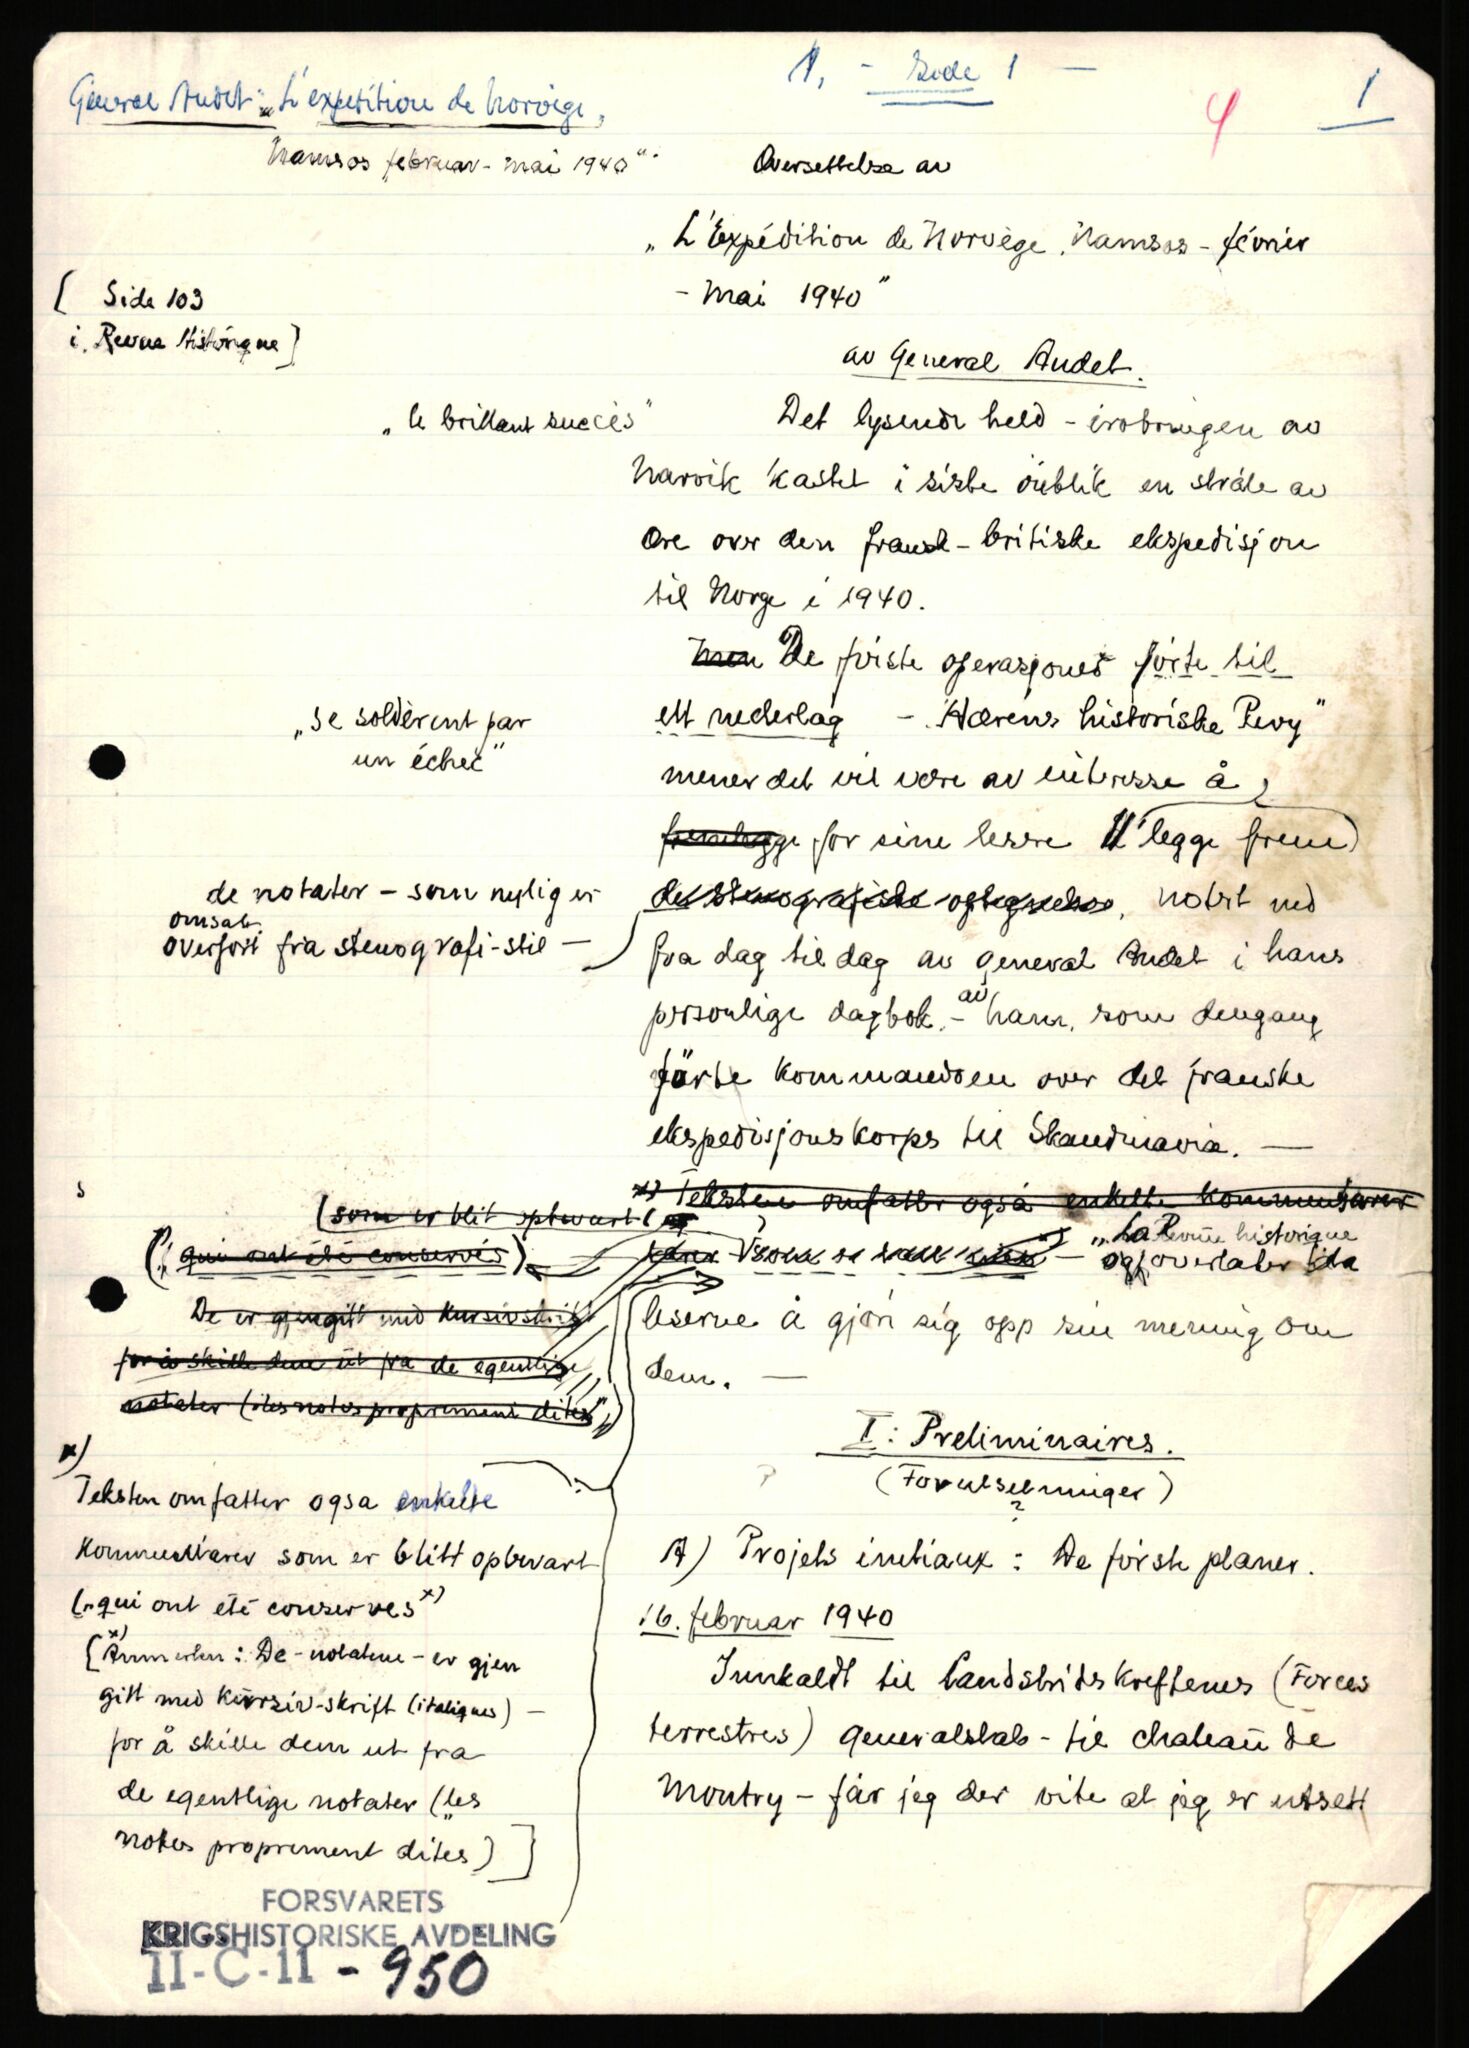 1. - Side 1 -
1
4
General Audet: "L'expedition de Norvège,
Namsos februar - mai 1940".
Oversettelse av
"L'Expédition de Norvège, Namsos - février
- Mai 1940"
av General Audet.
[ Side 103
i. Revue Historique ]
"le brillant succès"
Det lysende held - erobringen av
Narvik kastet i siste öieblik en stråle av
ære over den fransk-britiske ekspedisjon
til Norge i 1940.
Men De første operasjoner førte til
ett nederlag - "Hærens historiske Revy"
"se soldèrent par
un échec"
mener det vil være av interesse å
fremlegge for sine lesere legge frem
de notater - som nylig er
omsatt
overført fra stenografi-stil -
de stenografiske optegnelser, notert ned
fra dag til dag av general Audet i hans
personlige dagbok, - av ham, som dengang
førte kommandoen over det franske
ekspedisjonskorps til Skandinavia. -
x) Teksten omfatter også enkelte kommentarer
"La Revue historique
overlater
leserne å gjøre sig opp sin mening om
dem. -
(som er blit opbevart
("qui ont été conservés)
De er gjengitt med kursivskrift
for å skille dem ut fra de egentlige
notater (les notes proprement dites")
x)
Teksten omfatter ogsa enkelte
kommentarer som er blitt opbevart
("qui ont été conserves x)
[x) Anmerkn: De - notatene - er gjen
gitt med kursiv-skrift (italiques) -
for å skille dem ut fra
de egentlige notater (les
notes proprement dites) ]
I: Preliminaires.
(Forutsetninger)
?
A) Projets initiaux: De første planer.
16. februar 1940
Innkaldt til Landstridskreftenes (Forces
terrestres) generalstab - til chateau de
Montry - får jeg der vite at jeg er utsett
FORSVARETS
KRIGSHISTORISKE AVDELING
II-C-11 - 950